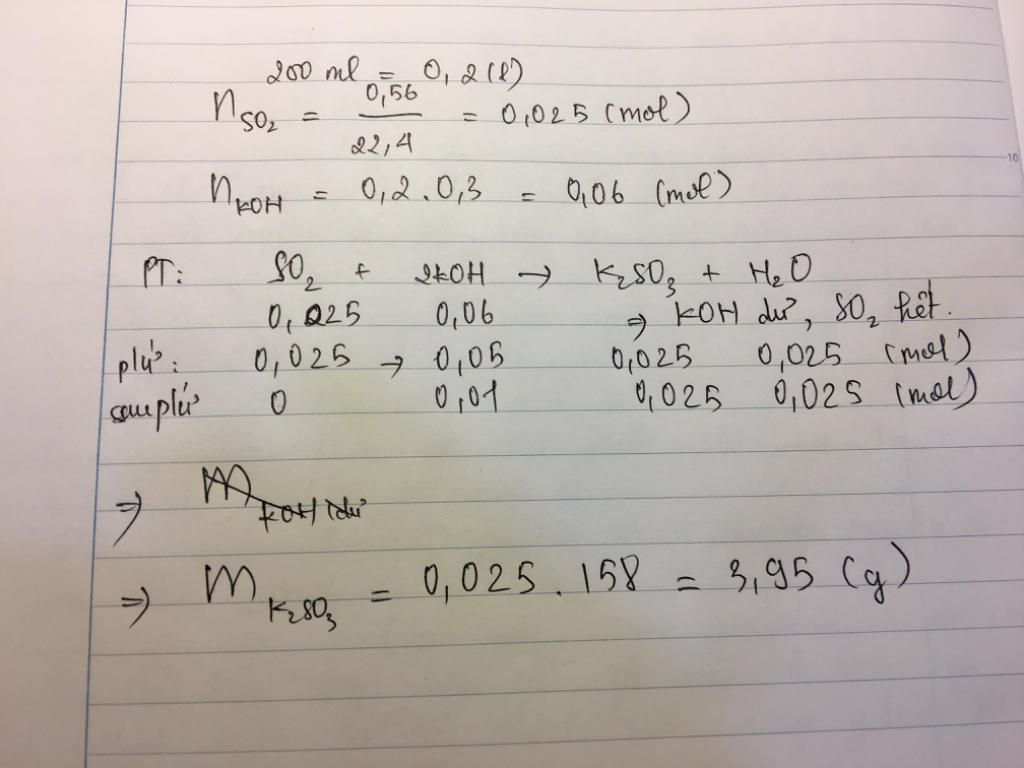 200 ml = 0,2 (l)
n SO₂ = 0,56 / 22,4 = 0,025 (mol)
n KOH = 0,2 . 0,3 = 0,06 (mol)
PT: SO₂ + 2KOH → K₂SO₃ + H₂O
0,025 0,06 ⇒ KOH dư, SO₂ hết.
pứ: 0,025 → 0,05 0,025 0,025 (mol)
sau pứ 0 0,01 0,025 0,025 (mol)
⇒ m KOH dư
⇒ m K₂SO₃ = 0,025 . 158 = 3,95 (g)
10